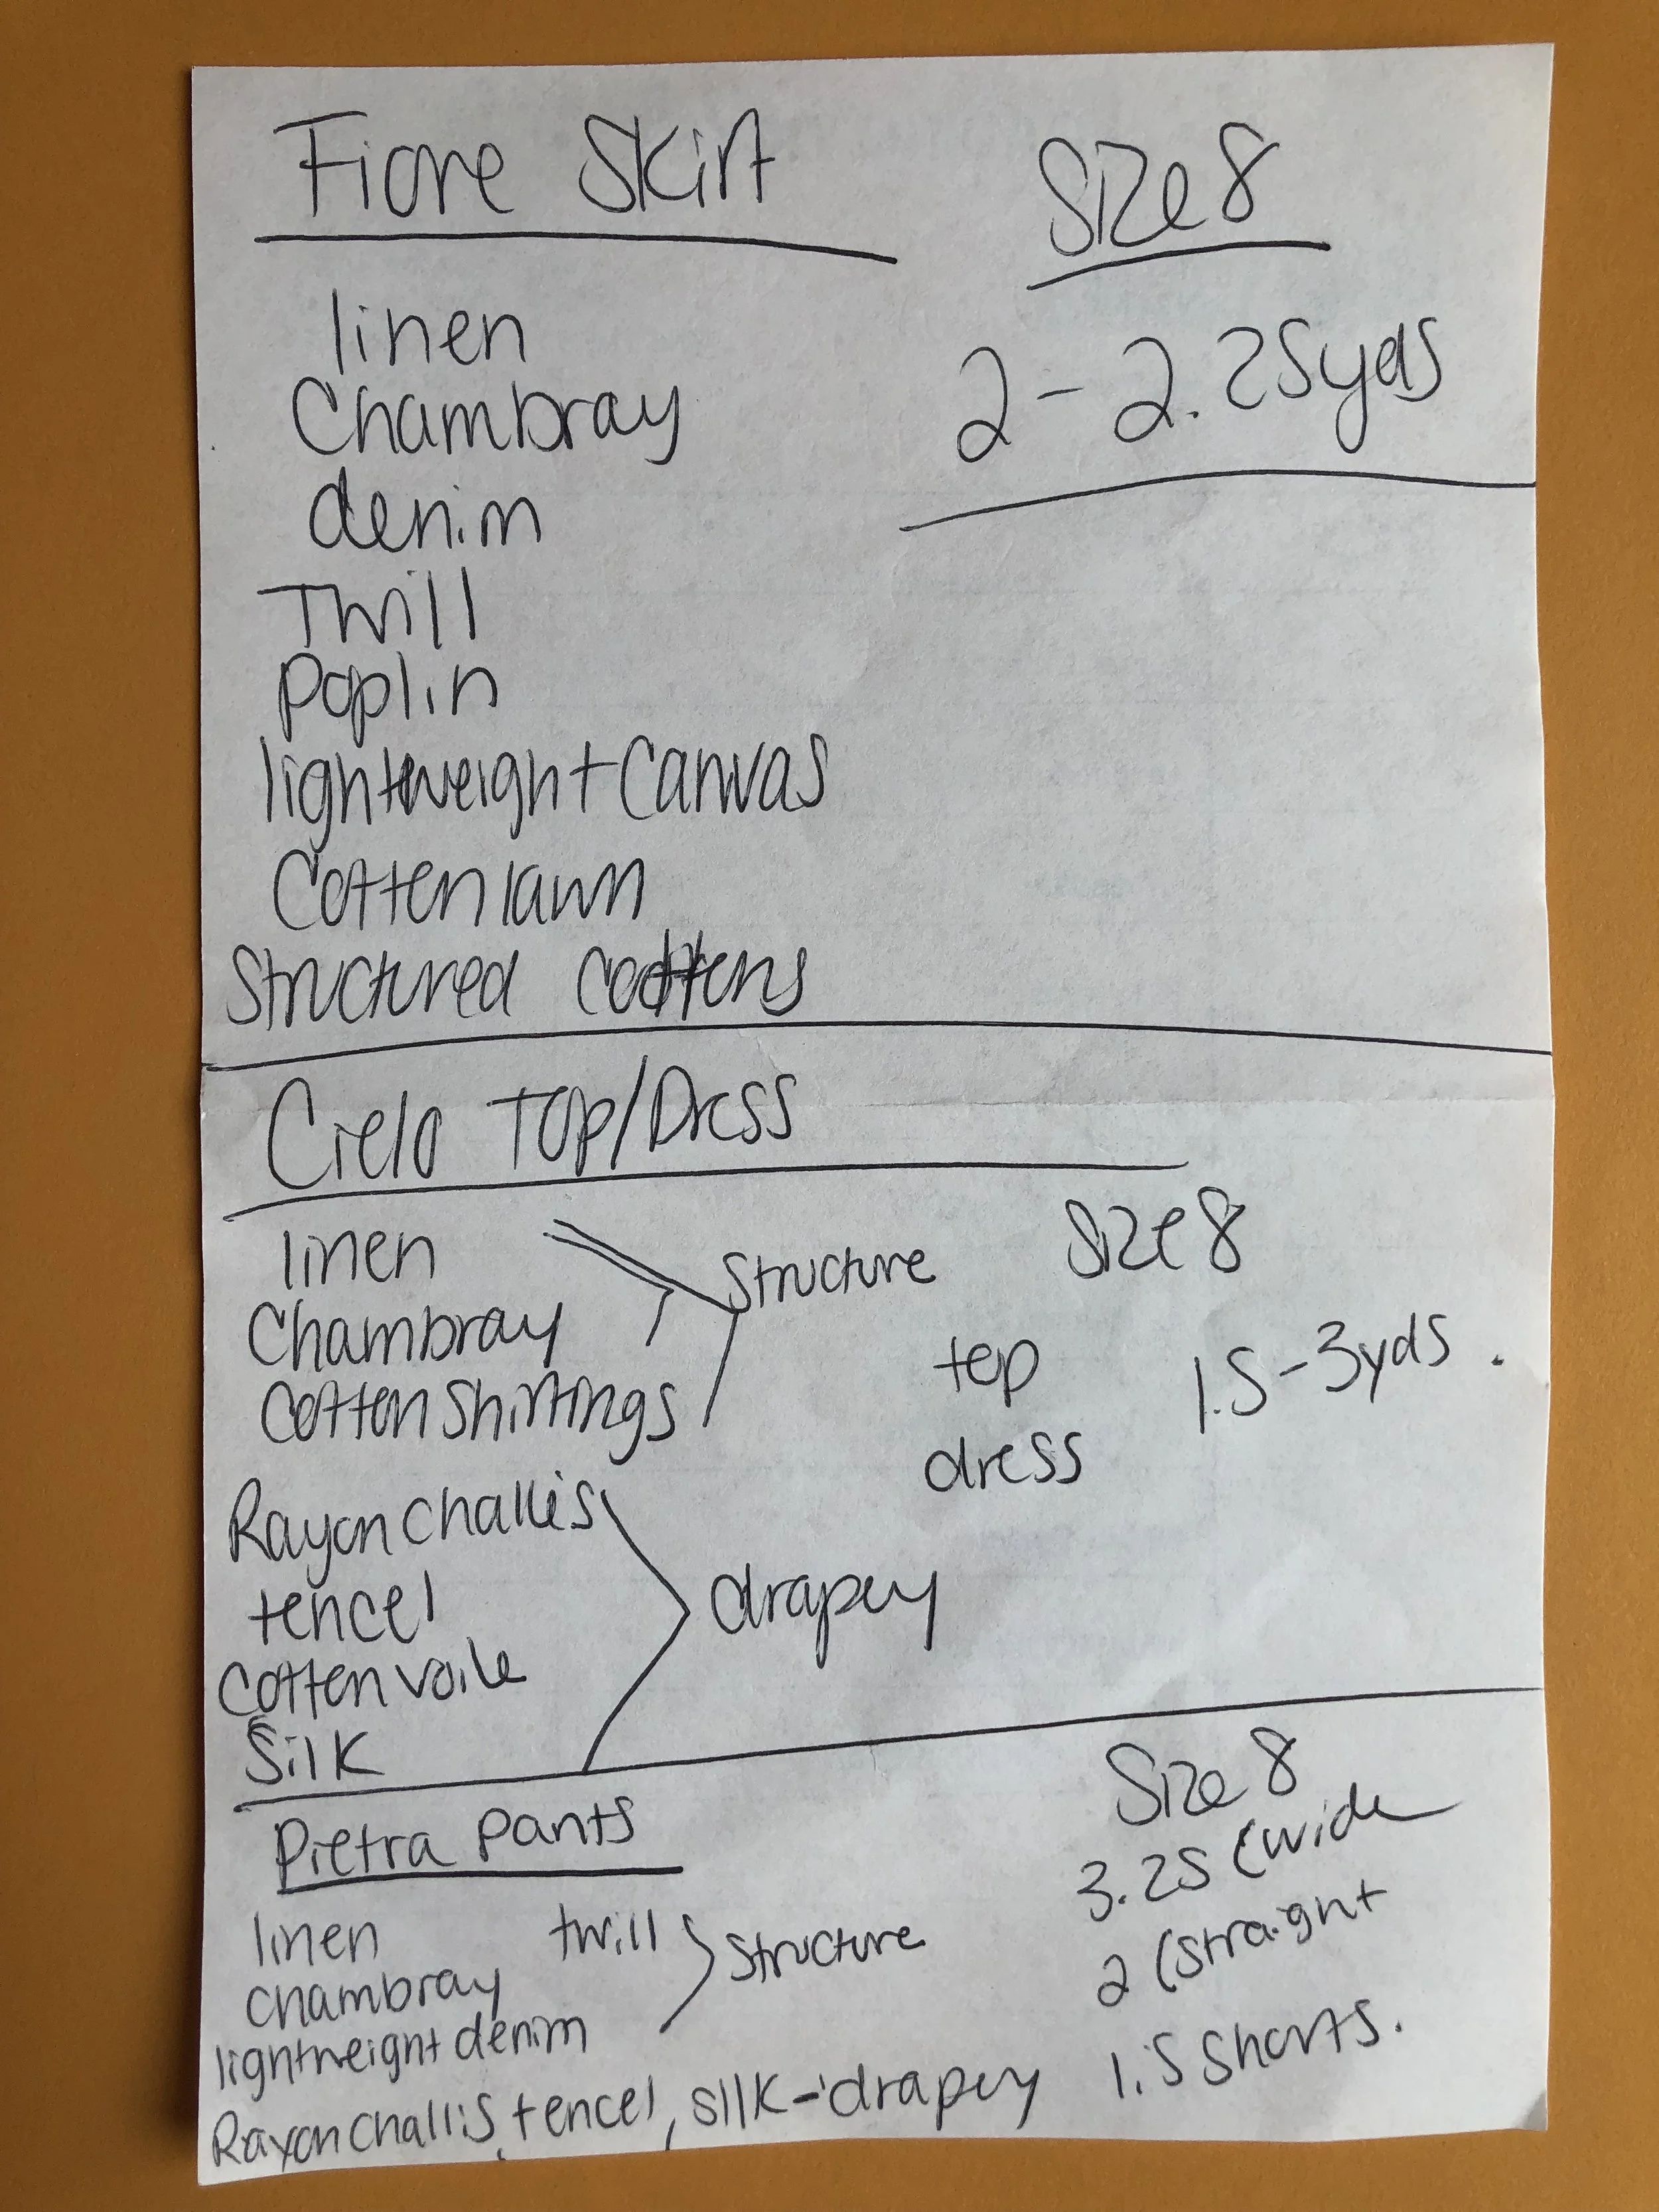 Fiore Skirt
Size 8
linen
2 - 2.25yds
Chambray
denim
Twill
Poplin
lightweight Canvas
Cotten lawn
Structured cottens
Cielo Top/Dress
linen
Structure
Size 8
Chambray
top
1.5-3yds.
Cotten Shirtings
dress
Rayon Challis
tencel
drapey
Cotten voile
Silk
Pietra Pants
Size 8
3.25 (wide
linen
twill
Structure
2 (straight
chambray
lightweight denim
1.5 shorts.
Rayon Challis, tencel, silk - drapey